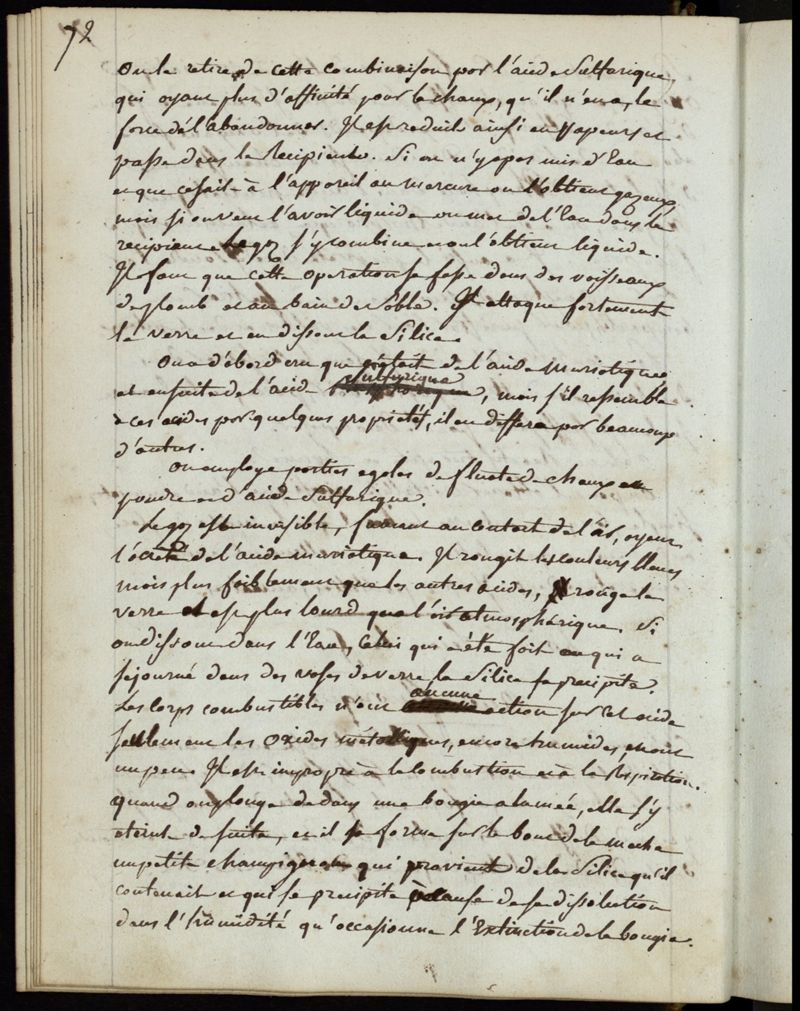 72
On le retire de cette combinaison par l'acide Sulfurique,
qui ayant plus d'affinité pour la chaux, qu'il n'en a, le
force de l'abandonner. Il se produit ainsi en Vapeurs et
passe dans le Recipient. Si on n'y a pas mis d'Eau
et que ce soit à l'appareil au mercure on l'obtient gazeux
mais si on veut l'avoir liquide on met de l'Eau dans le
recipient le gaz s'y combine et on l'obtient liquide.
Il faut que cette operation se fasse dans des vaisseaux
de plomb et au bain de Sable. Il attaque fortement
le verre et en dissout la Silice.
On a d'abord cru que c'était de l'acide Muriatique
et ensuite de l'acide Sulfurique, mais s'il ressemble
a ces acides par quelques proprietés, il en differe par beaucoup
d'autres.
On employe parties egales de fluate de chaux en
poudre et d'acide Sulfurique.
Le gaz est invisible, fumant au contact de l'air, ayant
l'odeur de l'acide muriatique. Il rougit les couleurs bleues
mais plus foiblement que les autres acides, Il ronge le
verre et est plus lourd que l'air atmospherique. Si
on dissout dans l'Eau, Celui qui a été fait ou qui a
séjourné dans des vases de verre la Silice se precipite.
Les corps combustibles n'ont aucune action sur cet acide
seulement les oxides métalliques, encore humides, en ont
un peu. Il est impropre à la Combustion et à la Respiration.
quand on plonge dedans une bougie alumée, elle s'y
eteint de suite, et il se forme sur le bout de la meche
un petit champignon qui provient de la Silice qu'il
contenait et qui se precipite à cause de sa dissolution
dans l'humidité qu'occasionne l'Extinction de la bougie.